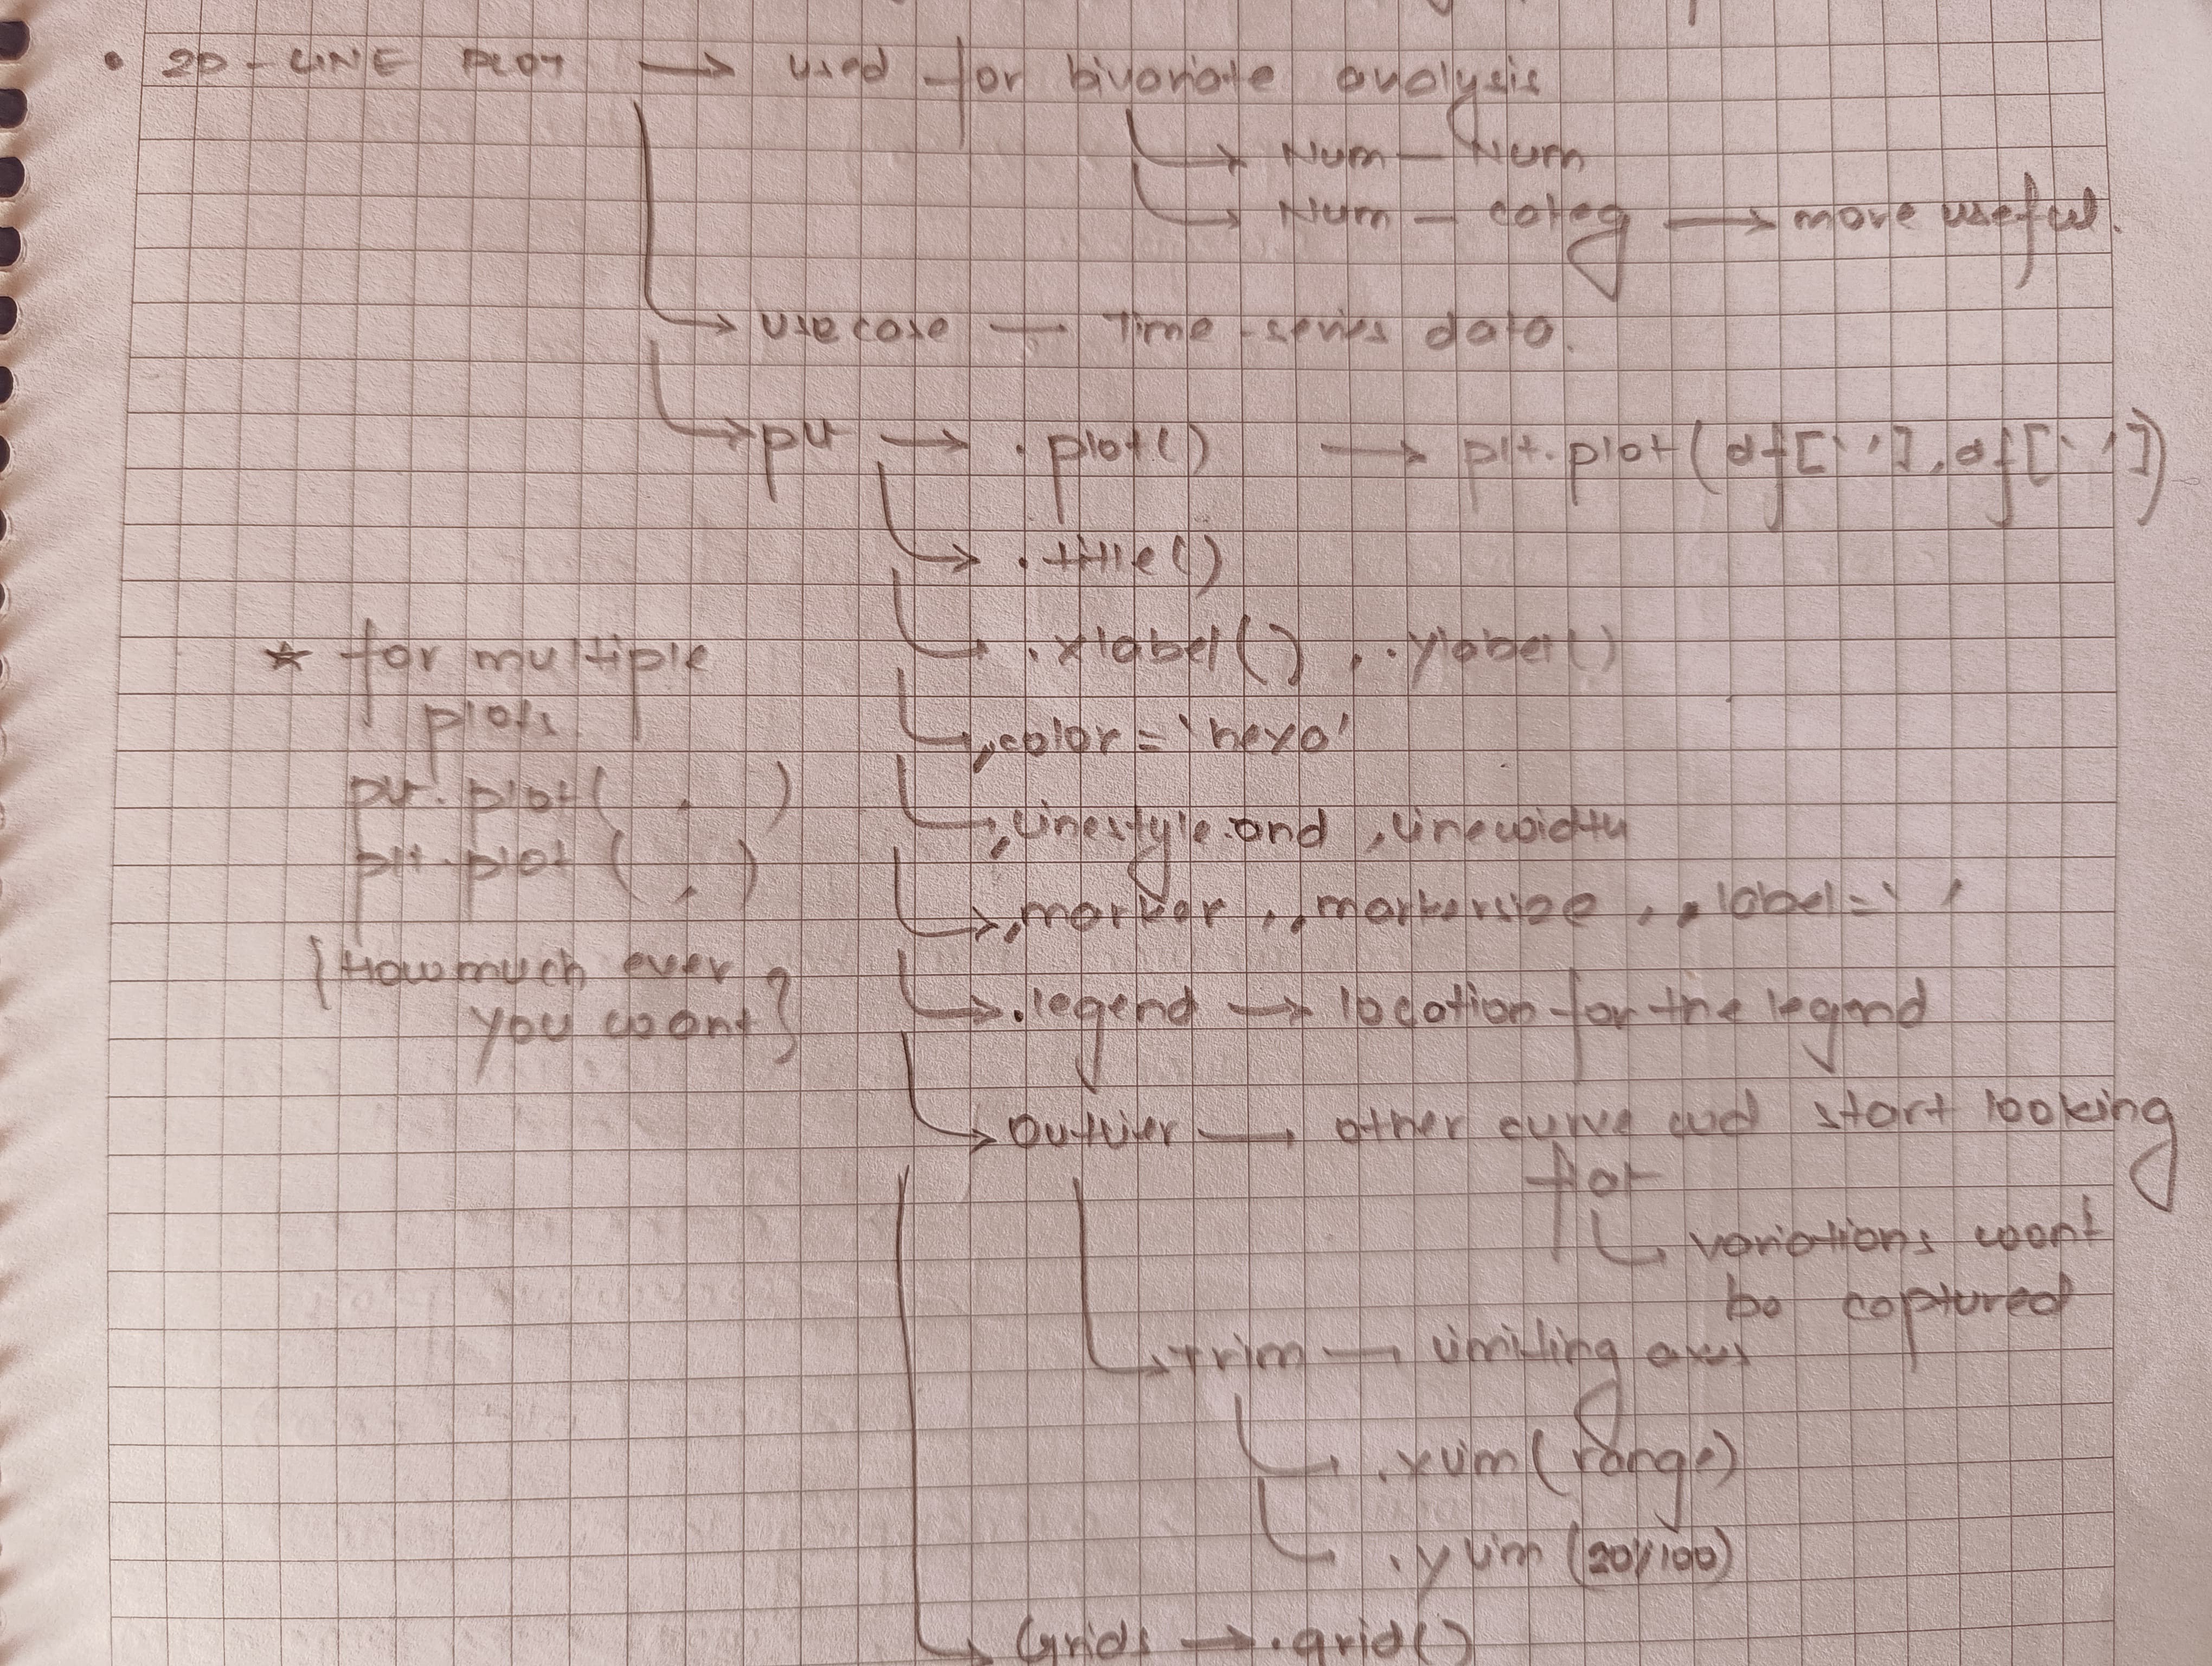 • 2D-LINE PLOT → used for bivariate analysis
→ Num — Num
→ Num — categ → more useful.
→ usecase — Time-series data.
→ plt → .plot() → plt.plot(df[' '], df[' '])
→ .title()
→ .xlabel(), .ylabel()
→ ,color = 'hexa'
→ ,linestyle and ,linewidth
→ ,marker, ,markersize, ,label=' '
→ .legend → location for the legend
→ outlier — other curve will start looking
flat
→ variations wont
be captured
→ trim — limiting axes
→ .xlim(range)
→ .ylim(20,100)
→ Grids → .grid()
☆ for multiple
plots
plt.plot( , )
plt.plot( , )
{How much ever
you want}